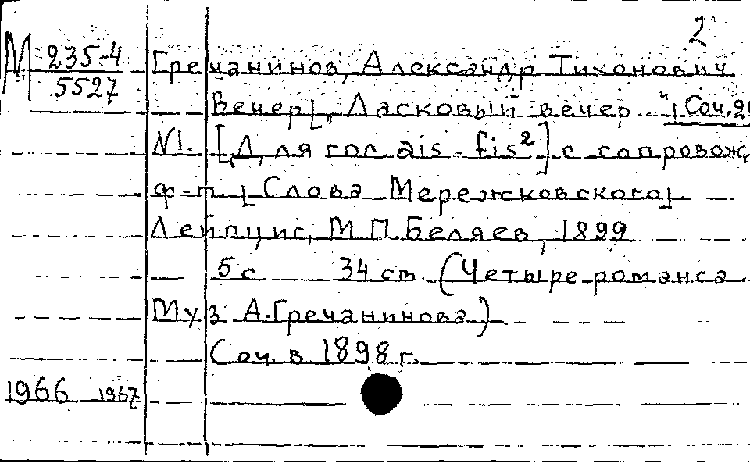 2
М 235-4 Гречанинов, Александр Тихонович
5527
Вечер[. „Ласковый вечер..."] Соч. 21
N1. [Для гол. ais-fis²] с сопровож.
ф-п. [Слова Мережковского]
Лейпциг, М.П. Беляев, 1899
5 с 34 см (Четыре романса
Муз. А. Гречанинова)
Соч. в 1898 г.
1966 1967